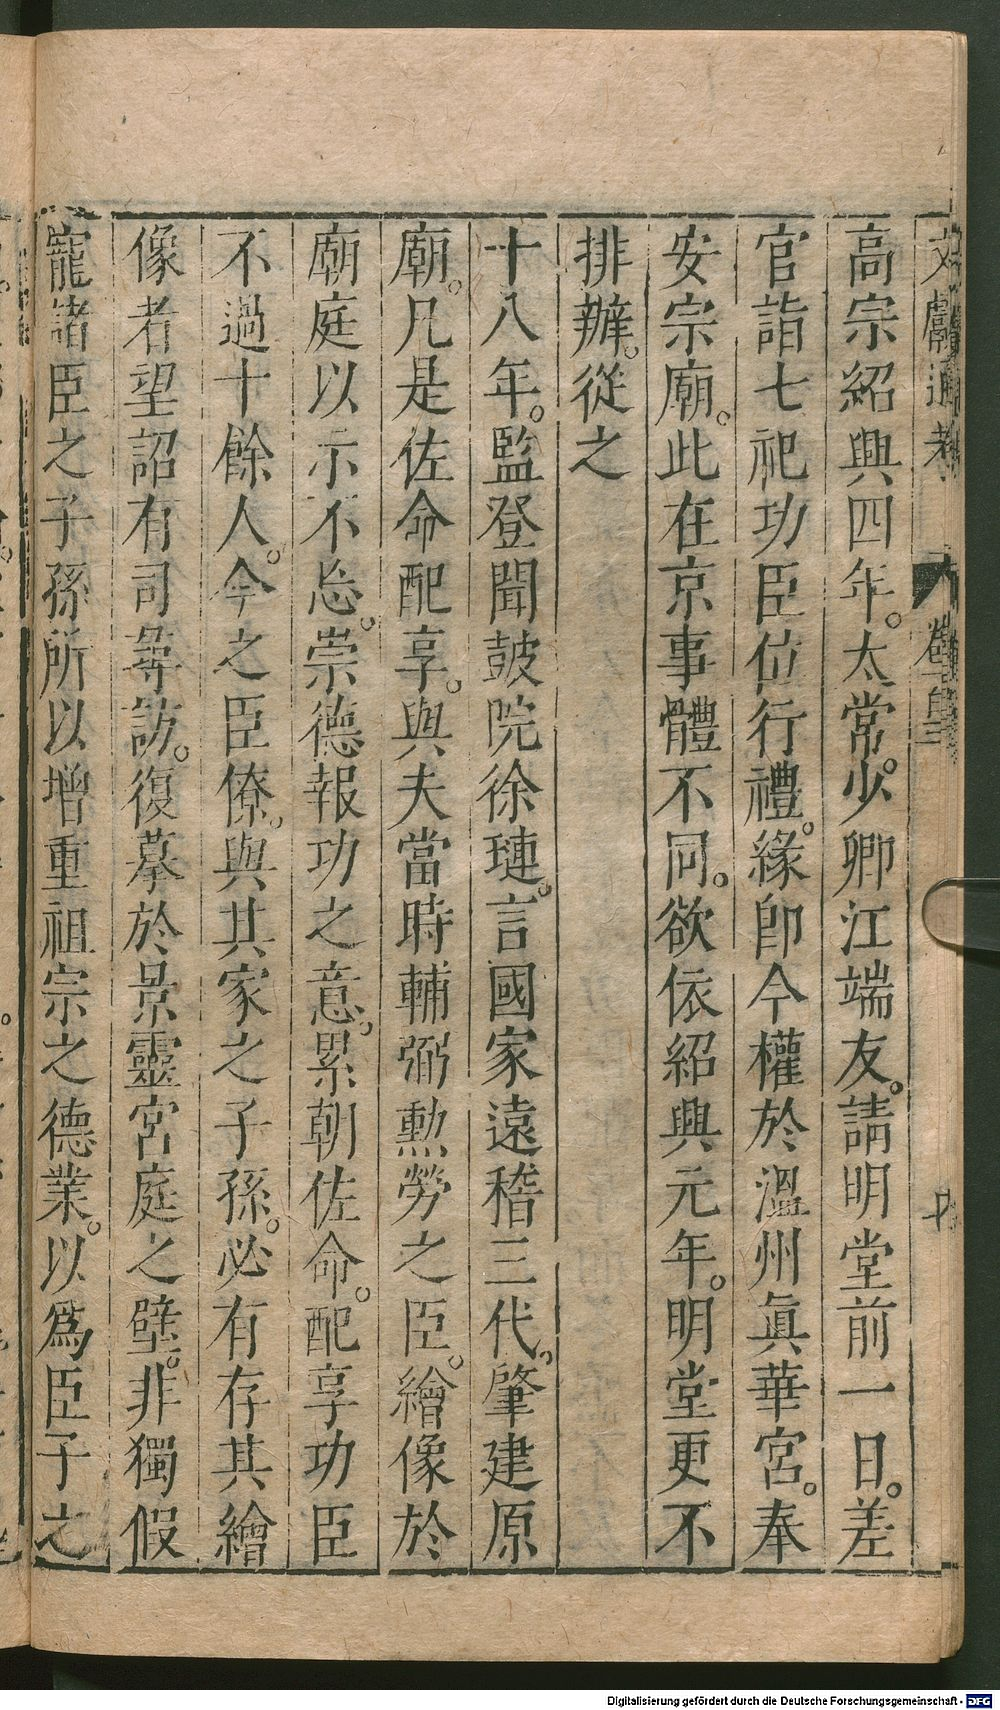 文獻通考 卷一百三 十
高宗紹興四年。太常少卿江端友。請明堂前一日。差
官詣七祀功臣位行禮。緣卽今權於溫州眞華宮。奉
安宗廟。此在京事體不同。欲依紹興元年。明堂更不
排辦。從之
十八年。監登聞鼓院徐璉。言國家遠稽三代。肇建原
廟。凡是佐命配享。與夫當時輔弼勲勞之臣。繪像於
廟庭以示不忘。崇德報功之意。累朝佐命。配享功臣
不過十餘人。今之臣僚。與其家之子孫。必有存其繪
像者望詔有司尋訪。復摹於景靈宮庭之壁。非獨假
寵諸臣之子孫所以增重祖宗之德業。以爲臣子之
Digitalisierung gefördert durch die Deutsche Forschungsgemeinschaft - DFG